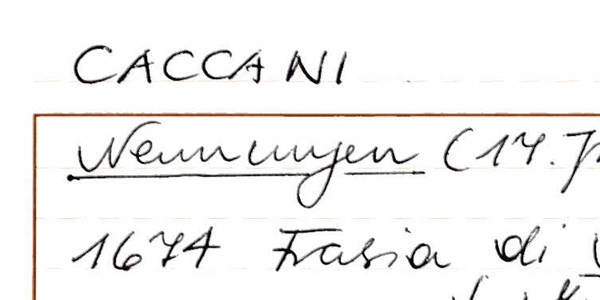 CACCANI
Nennungen (17. J
1674 Frasia di